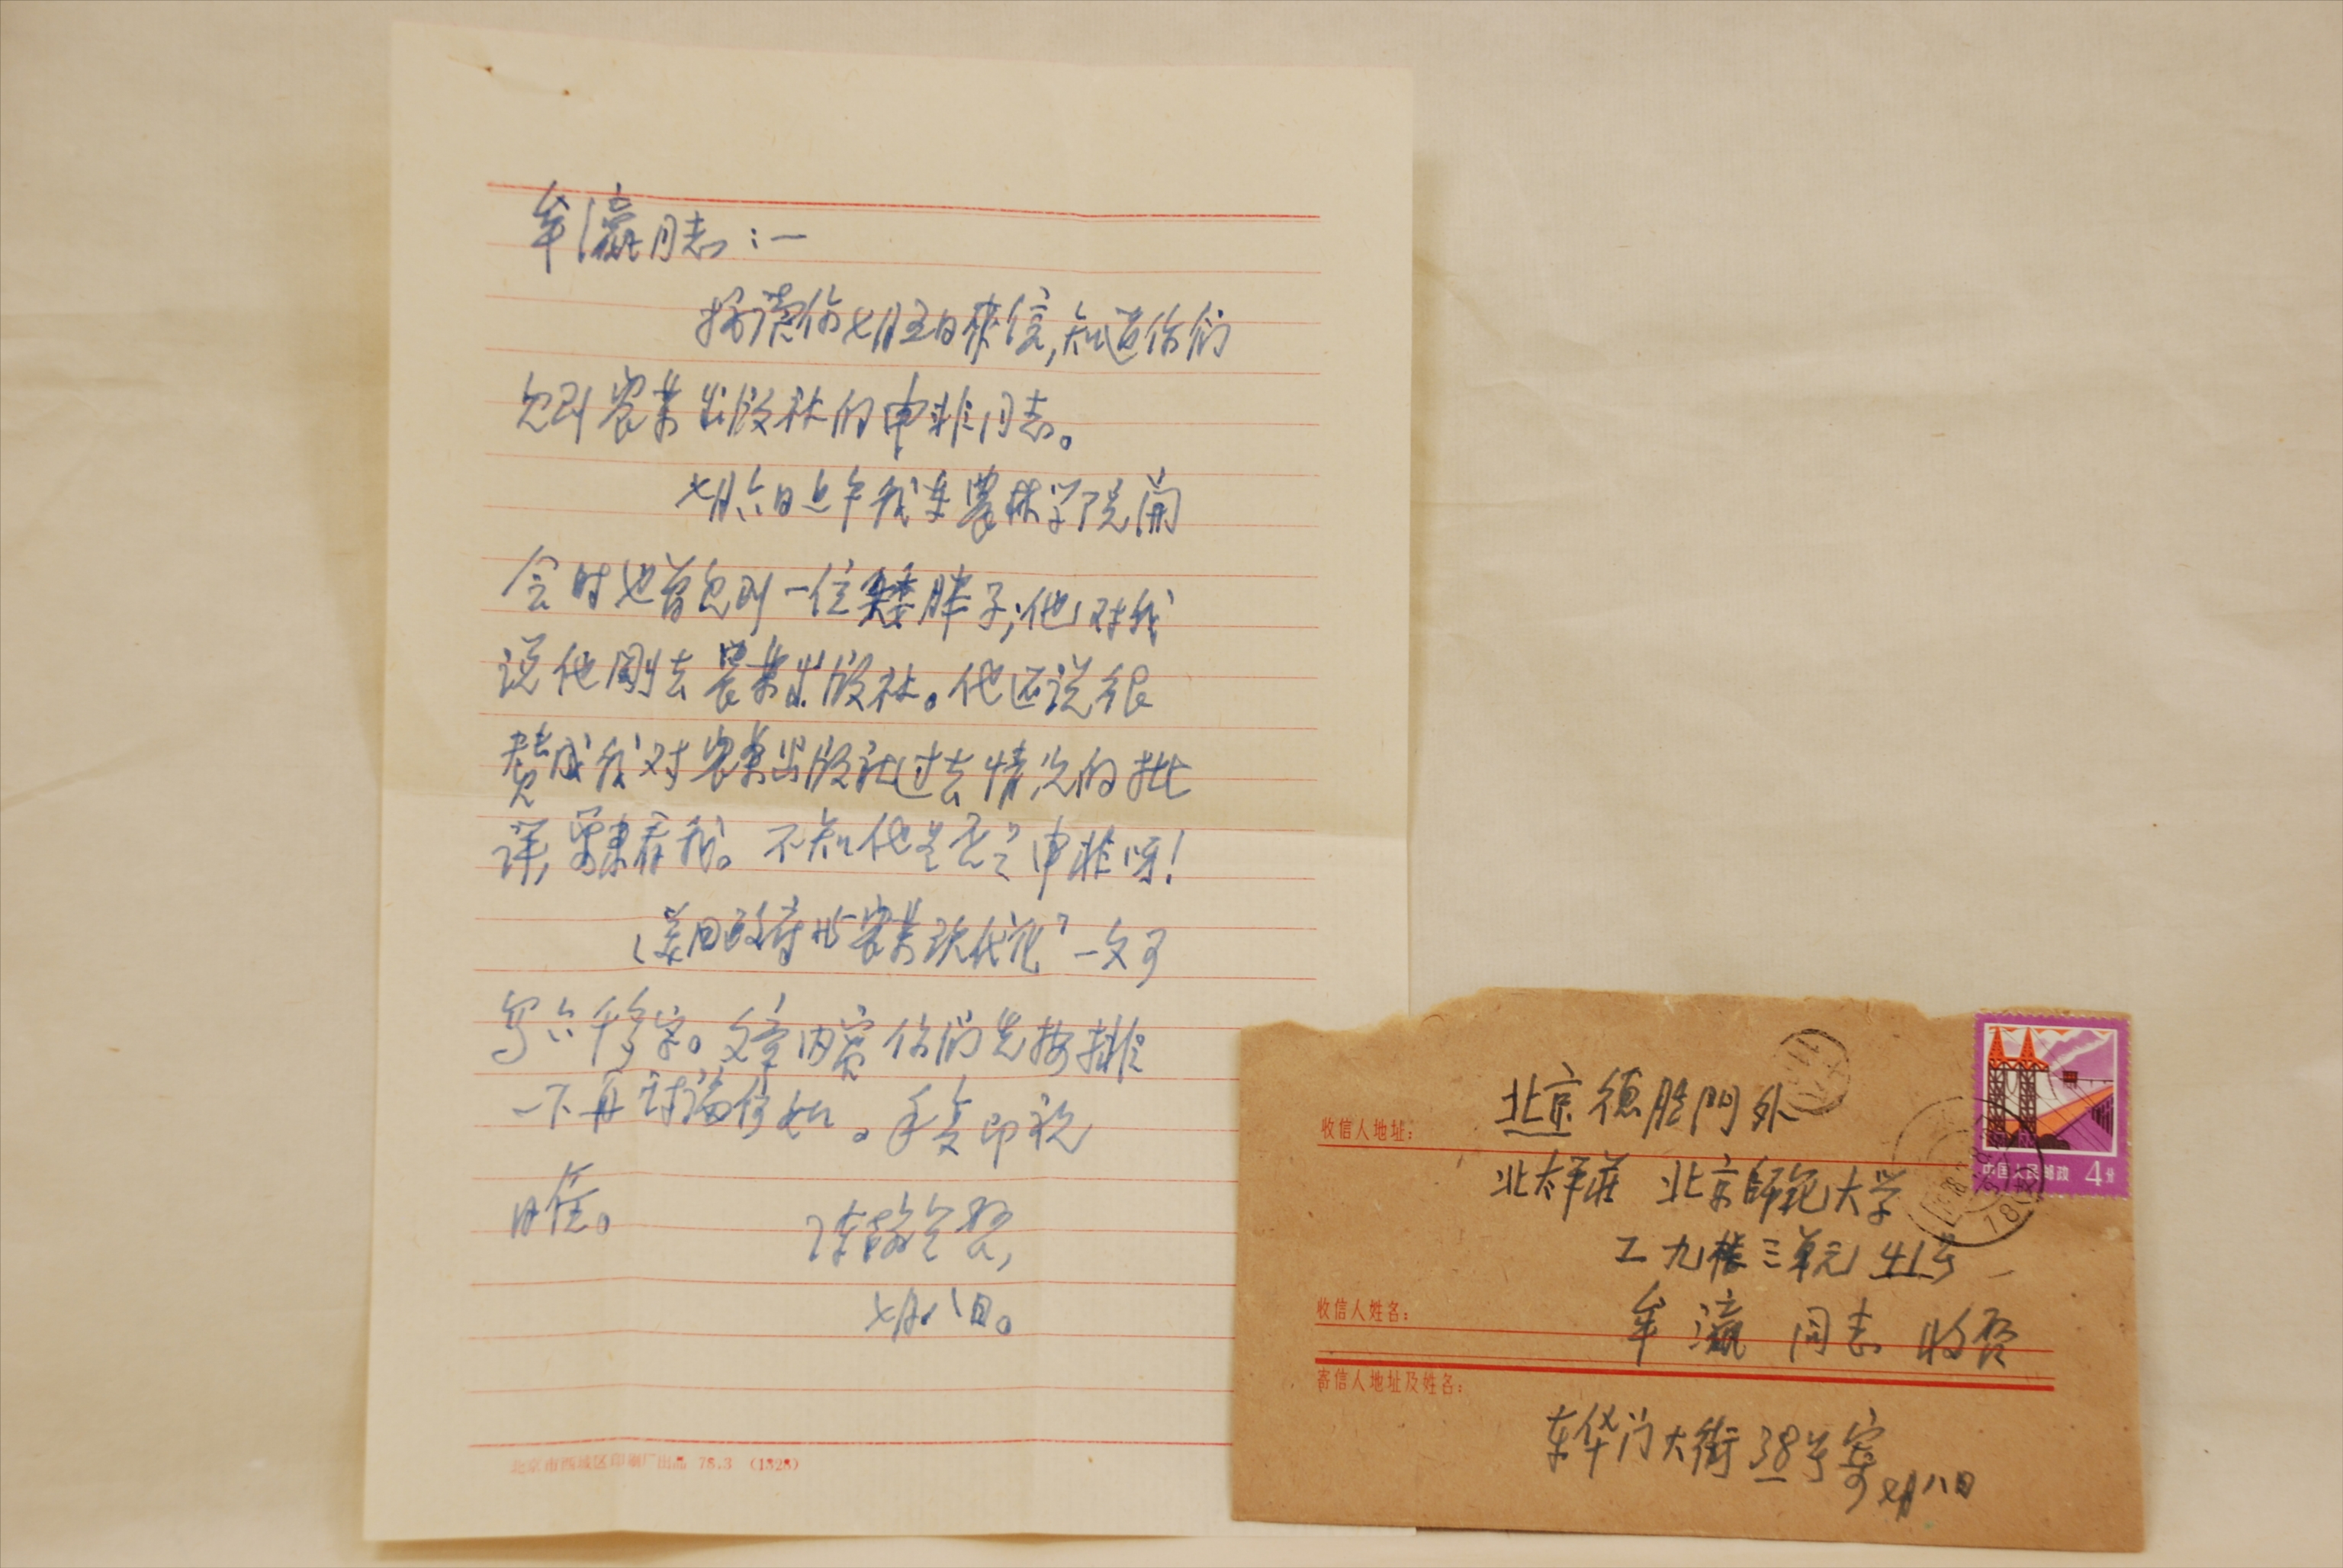 牟瀛同志：—
接读你七月五日来信，知道你们
见到农業出版社的申非同志。
七月六日上午我在農林学院開
会时也曾见到一位矮胖子；他对我
说他刚去農業出版社。他还说很
赞成我对农業出版社过去情况的批
评，要来看我。不知他是否是申非呀！
美国政府与“农業现代化”一文可
写六千多字。文章内容你们先按排
一下再讨论何如。手复即祝
日佳。
七月八日。
北京市西城区印刷厂出品 78.3 (1328)
收信人地址：
北京德胜門外
北太平莊 北京師范大学
工九楼三單元41号
收信人姓名：
牟瀛 同志 收启
寄信人地址及姓名：
东华门大街38号寄
七月八日
中国人民邮政 4分